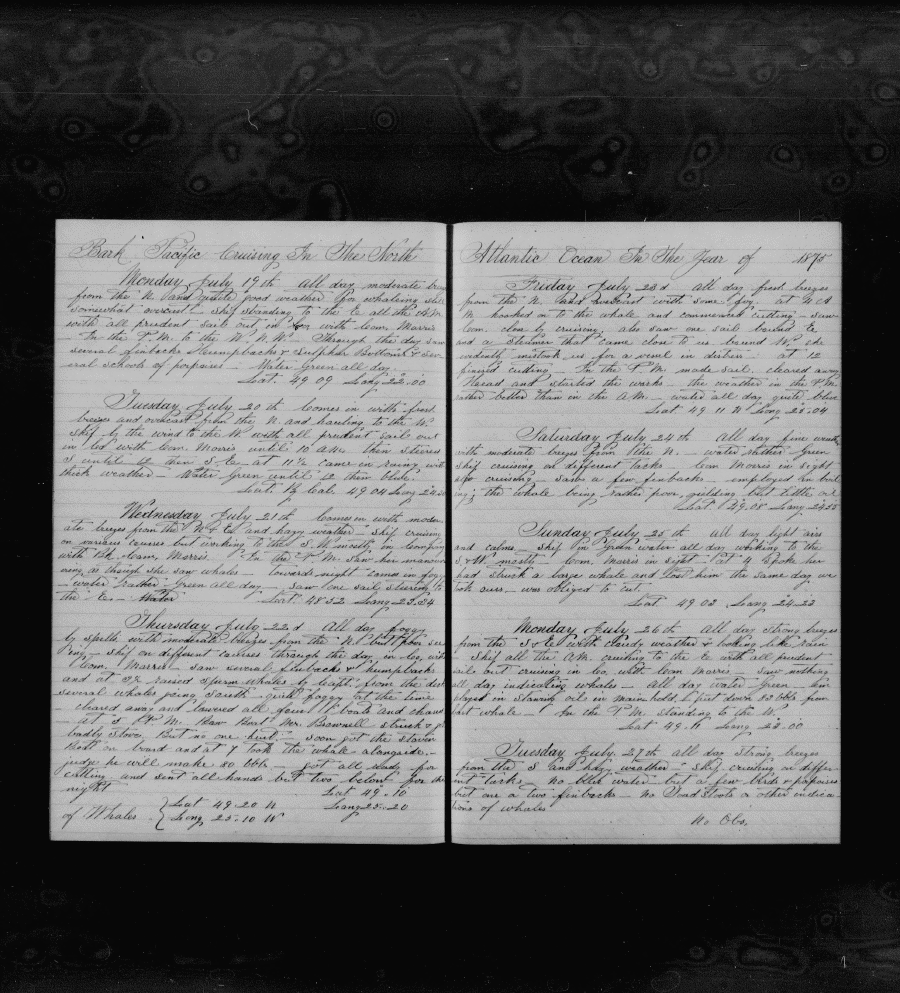 Bark Pacific Cruising In The North
Monday July 19th All day moderate breezes
from the N. and quite good weather for whaling the
somewhat overcast. Ship standing to the E all the A.M.
with all prudent sail out in Co with Com. Morris
In the P.M. to the W. N. W. Through the day saw
several finbacks Humpbacks & Sulphur Bottoms & sev
eral schools of porpoises — Water Green all day
Lat. 49 09 Long 22.00
Tuesday July 20th Comes in with fresh
breezes and overcast from the N. and hauling to the W.
Ship by the wind to the N with all prudent sail out
in Co with Com. Morris until 10 A.M. then steered
S until 12 then S E — at 11½ came in rainy with
thick weather — Water Green until 12 then blue.
Lat. By Cal. 49 04 Long 24
Wednesday July 21th Comes in with moder
ate breezes from the N & E and hazy weather — Ship cruising
on various courses but working to the S.W. mostly in company
with Bk. Com. Morris. In the P.M. saw her manouv
ering as though she saw whales — towards night came in foggy
— water rather Green all day — saw one sail steering to
the E. — Water Lat. 48 52 Long 23.54
Thursday July 22d All day foggy
by spells with moderate breezes from the N. but poor see
ing — ship on different courses through the day in Co. with
Com. Morris — saw several finbacks & humpbacks
and at 2½ raised sperm whales by light from the deck
several whales going South quite foggy at the time
cleared away and lowered all four boats and chased
— at 5 P.M. Bow Boat Mr. Brownell struck & got
badly stove. But no one hurt — soon got the stoven
Boat on board and at 7 took the whale alongside —
judge he will make 80 bbls — got all ready for
cutting and sent all hands but two below for the
night Lat 49.10
of Whales { Lat 49.20 N Long 25.20
{ Long 25.10 W
Atlantic Ocean In The Year of 1875
Friday July 23d All day fresh breezes
from the N. and overcast with some fog. at 4 A
M. hooked on to the whale and commenced cutting — saw
Com. close by cruising. also saw one sail bound E
and a steamer that came close to us bound W. she
evidently mistook us for a vessel in distress at 12
finished cutting — In the P.M. made sail. cleared away
Head and started the works — the weather in the P.M.
rather better than in the A.M. — water all day quite blue
Lat 49 11 N Long 25.04
Saturday July 24th All day fine weather
with moderate breezes from the N. — water rather Green
Ship cruising on different tacks — Com Morris in sight
also cruising. saw a few finbacks — employed in boil
ing; the whale being rather poor, yielding but little oil
Lat 49.08 Long 24.55
Sunday July 25th All day light airs
and calms — ship in Green water all day working to the
S & W. mostly — Com. Morris in sight — at 4 Spoke her
had struck a large whale and lost him the same day we
took ours — was obliged to cut.
Lat. 49 02 Long 24.23
Monday July 26th All day strong breezes
from the S & E with cloudy weather & looking like rain
— Ship all the A.M. cruising to the E with all prudent
sail out cruising in Co. with Com Morris — saw nothing
all day indicating whales — all day water Green — Em
ployed in stowing oil in main hold & put down 52 bbls from
last whale — In the P.M. standing to the W
Lat 49.11 Long 23.00
Tuesday July 27th all day strong breezes
from the S and hazy weather — Ship cruising on differ-
ent tacks — no blue water — but a few birds & porpoises
but one or two finbacks — no Toad stools or other indica
tions of whales
No Obs.